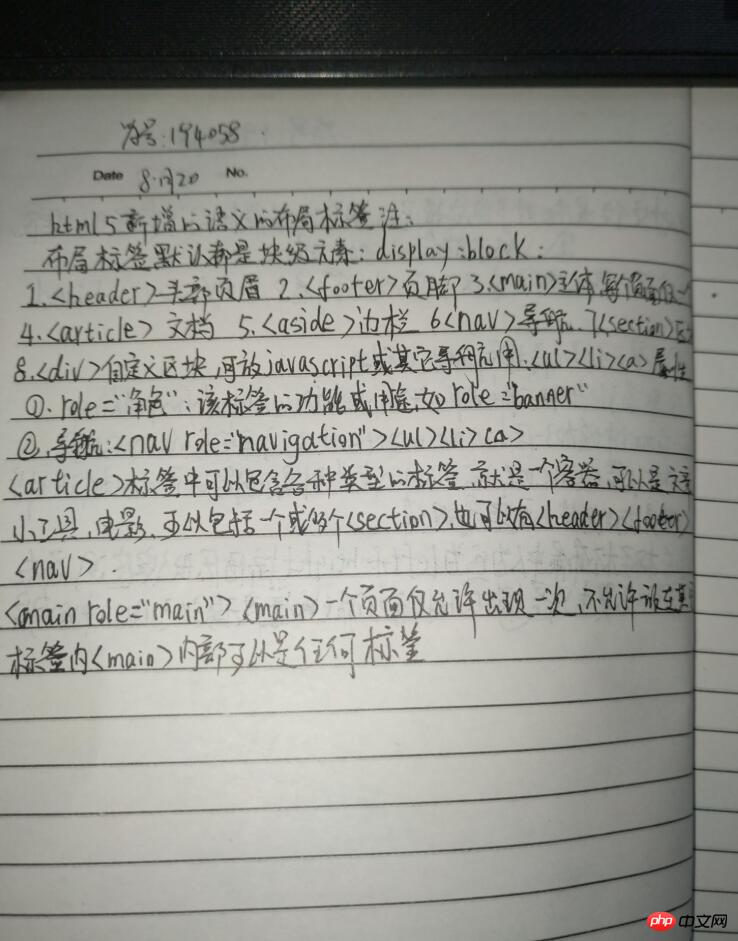 学号:194058
Date 8.月20 No.
html5新增的语义的布局标签注:
布局标签默认都是块级元素:display:block;
1.<header>头部页眉 2.<footer>页脚 3.<main>主体,每个页面仅一
4.<article>文档 5.<aside>边栏 6<nav>导航 7<section>区
8.<div>自定义区块,可放javascript或其它导航用:<ul><li><a>属性
①. role="角色":该标签的功能或用途,如role="banner"
②.导航:<nav role="navigation"><ul><li><a>
<article>标签中可以包含各种类型的标签,就是一个容器,可以是文章
小工具,电影,可以包括一个或多个<section>,也可以有<header><footer>
<nav>.
<main role="main"> <main>一个页面仅允许出现一次,不允许放在其
标签内<main>内部可以是任何标签
php 中文网